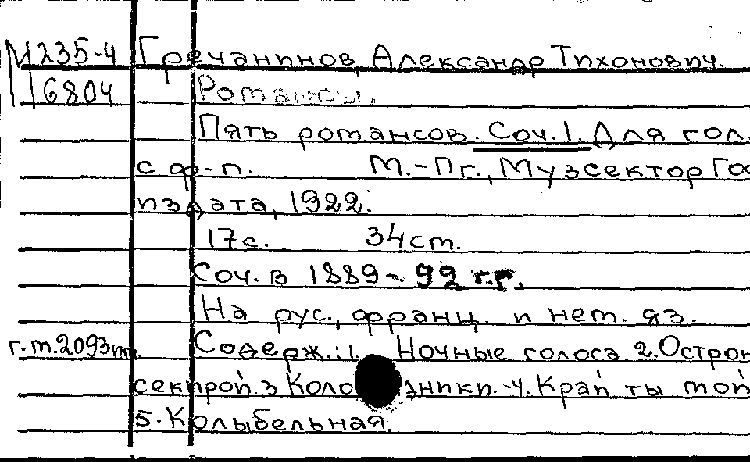 М235-4 Гречанинов, Александр Тихонович.
16804 Романсы.
Пять романсов. Соч.1. Для гол.
с ф-п. М.-Пг., Музсектор Гос
издата, 1922.
17с. 34см.
Соч. в 1889-92 г.г.
На рус., франц. и нем. яз.
г.т.2093 Содерж.: 1. Ночные голоса 2. Острою
секирой. 3. Коло ьчики. 4. Край ты мой
5. Колыбельная.